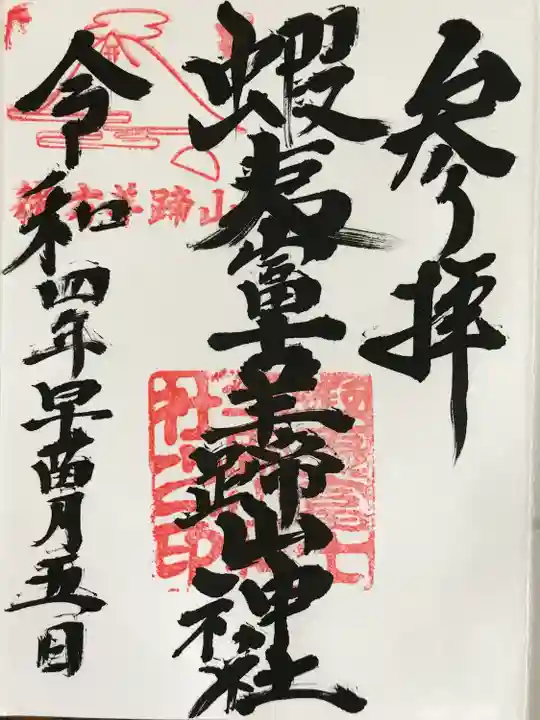 参拝
蝦夷富士羊蹄山神社
令和四年早苗月五日
山蹄羊
社之印